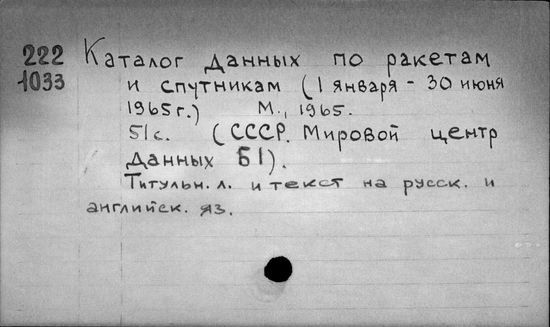 222 Каталог данных по ракетам
1033 и спутникам (1 января - 30 июня
1965г.) М., 1965.
51с. (СССР. Мировой центр
данных Б1).
Титульн. л. и текст на русск. и
английск. яз.